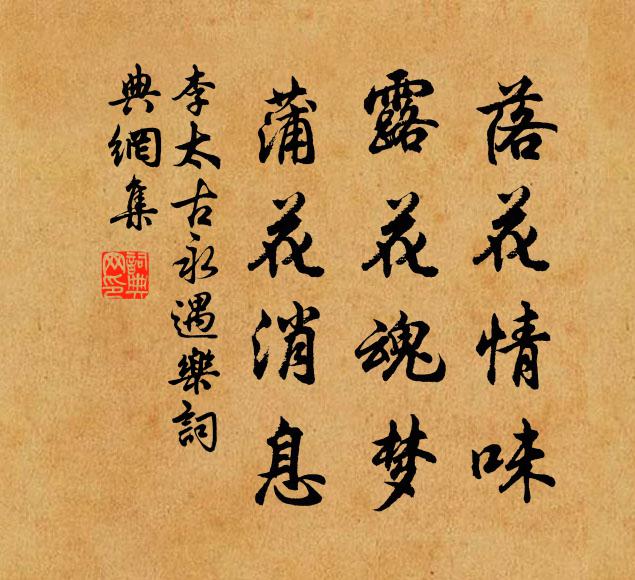 落花情味
露花魂梦
蒲花消息
李太古永遇樂詞
典網集
詞典
网印